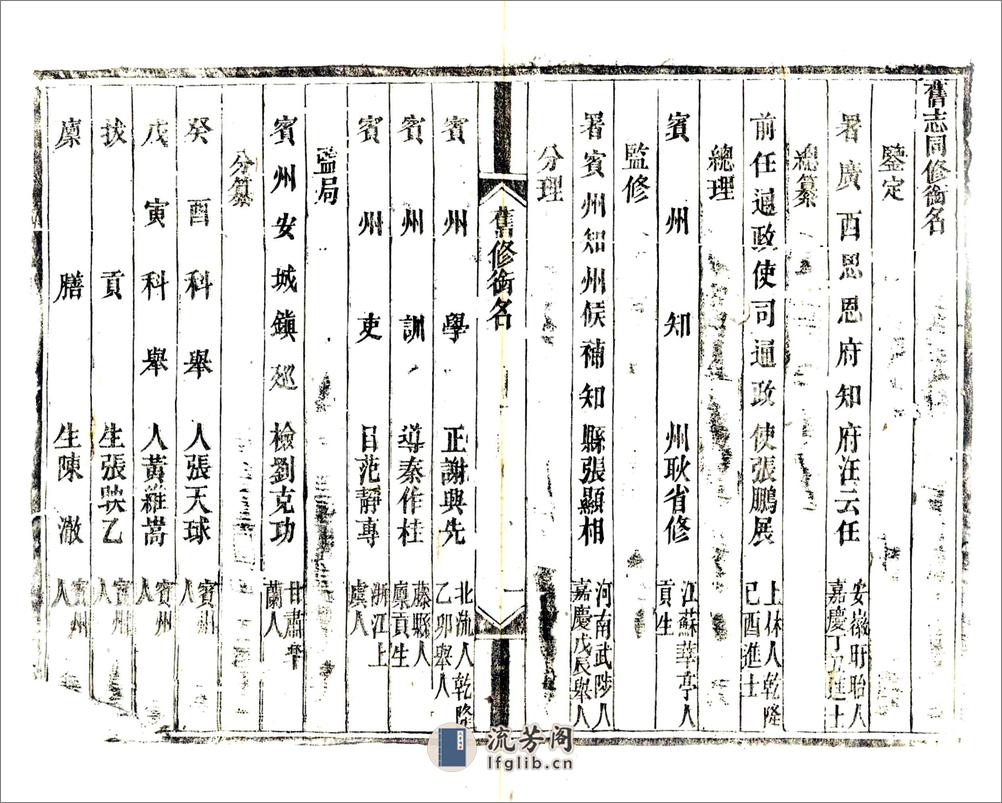 舊志同修銜名
鑒定
署廣西思恩府知府汪云任 安徽盱眙人 嘉慶丁丑進士
總纂
前任通政使司通政使張鵬展 上林人乾隆 己酉進士
總理
賓州知州耿省修 江蘇華亭人 貢生
監修
署賓州知州候補知縣張顯相 河南武陟人 嘉慶戊辰舉人
分理
舊修銜名 一
賓州學正謝興先 北流人乾隆 乙卯舉人
賓州訓導秦作桂 藤縣人 廩貢生
賓州吏目范靜專 浙江上 虞人
監局
賓州安城鎮廵檢劉克功 甘肅皋 蘭人
分纂
癸酉科舉人張天球 賓州 人
戊寅科舉人黃維嵩 賓州 人
拔貢生張映乙 賓州 人
廩膳生陳澈 賓州 人
流芳阁
lfglib.cn